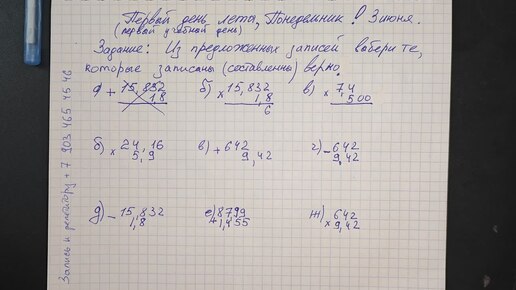 Первый день лета, Понедельник! 3 июня.
(первый учебный день)
Задание: Из предложенных записей выбери те,
которые записаны (составлены) верно.
а) + 15,832 б) × 15,832 в) × 7,4
1,8 1,8 500
6
б) × 24,16 в) + 642 г) - 642
5,9 9,42 9,42
д) - 15,832 е) 8799 ж) × 642
1,8 + 1,455 9,42
Запись к репетитору + 7 903 465 45 46